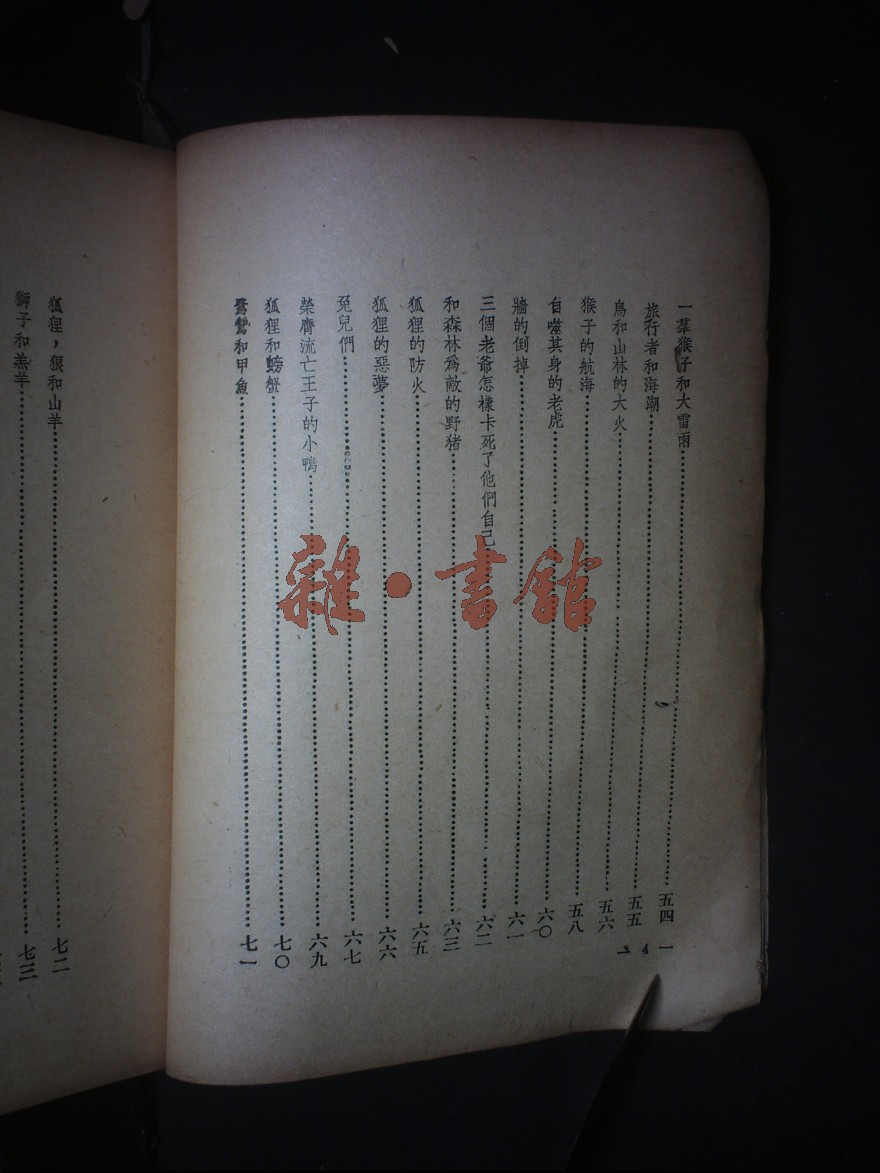 一羣猴子和大雷雨……五四
旅行者和海潮……五五
鳥和山林的大火……五六
猴子的航海……五八
自噬其身的老虎……六〇
牆的倒掉……六一
三個老爺怎樣卡死了他們自己……六二
和森林為敵的野猪……六三
狐狸的防火……六五
狐狸的惡夢……六六
兔兒們……六七
榮膺流亡王子的小鴨……六九
狐狸和螃蟹……七〇
和甲魚……七一
狐狸，狽和山羊……七二
獅子和羔羊……七三
雜·書館